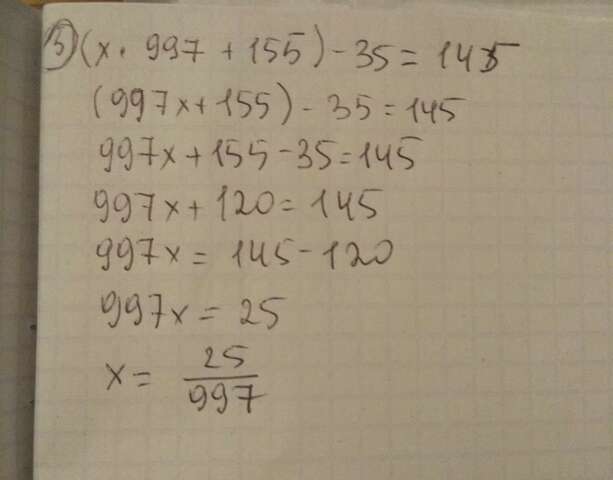 3) (x · 997 + 155) - 35 = 145
(997x + 155) - 35 = 145
997x + 155 - 35 = 145
997x + 120 = 145
997x = 145 - 120
997x = 25
x = 25/997